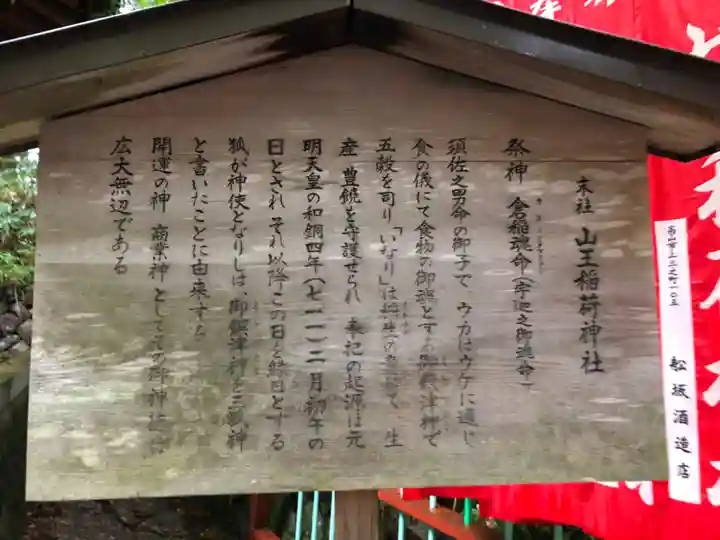 末社 山王稲荷神社
祭神 倉稲魂命(宇迦之御魂命)
須佐之男命の御子で ウカはウケに通じ
食の儀にて食物の御魂とする御饌津神で
五穀を司り「いなり」は稲生の意にて 生
産 豊饒を守護せられ 奉祀の起源は元
明天皇の和銅四年(七一一)二月初午の
日とされ それ以降この日を祭日とする
狐が神使となりしは、御饌津神を三狐神
と書いたことに由来する
開運の神 商業神としてその御神徳は
広大無辺である
高山市上三之町一〇五
舩坂酒造店